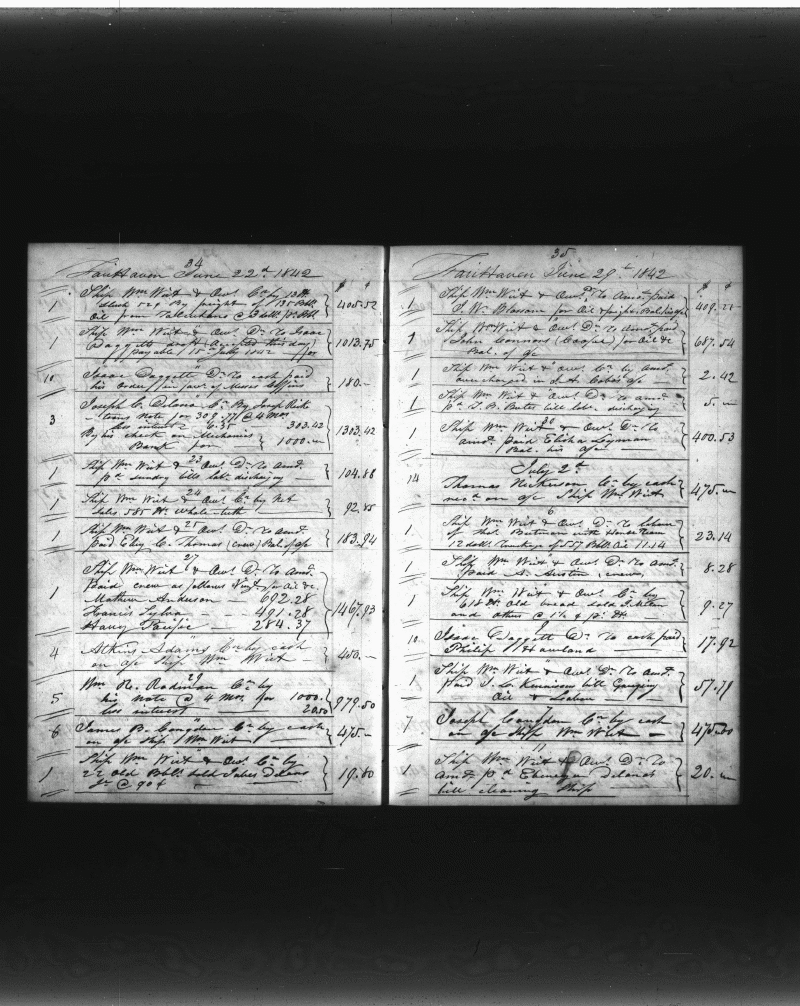 34
FairHaven June 22d 1842
$ ¢
1 Ship Wm Wirt & Ow.s Cr by
By freight of 135 Bbls
Oil from @ 3 doll. pr Bbl. 405.52
1 Ship Wm Wirt & Ow.s Dr To Isaac
Daggett draft (Accepted this day)
payable 15th July 1842 for 1013.75
10 Isaac Daggett Dr To cash paid
his Order in fav. of Messrs 180.—
3 Joseph C. Cr By Joseph
Note for 309.77 @ 4 mos
less interest 6.35 303.42
By his check on Mechanics
Bank for 1000.— 1303.42
23
1 Ship Wm Wirt & Ow.s Dr To Amt.
pd sundry bills Lab. discharging — 104.88
24
1 Ship Wm Wirt & Ow.s Cr by Net
sales 585 lbs Whale-teeth — 92.85
1 Ship Wm Wirt & Ow.s Dr To amt.
paid C. Thomas (crew) Bal. of a/c 183.94
27
1 Ship Wm Wirt & Ow.s Dr To Amt.
Paid crew as follows for Oil &c.
Mathew Anderson — 692.28
Francis Sylvia — 491.28
Harry Pacific — 284.37 1467.93
4 Atkins Adams Cr by cash
on a/c Ship Wm Wirt — 450.—
29
5 Wm R. Rodman Cr by
his note @ 4 Mos. for 1000.
less interest 20.50 979.50
6 James B. Congdon Cr by cash
on a/c Ship Wm Wirt — 475.—
1 Ship Wm Wirt & Ow.s Cr by
22 Old Bbls. sold Jabes Delano
Jr @ 90¢ — 19.80
35
FairHaven June 29th 1842
$ ¢
1 Ship Wm Wirt & Ow.s Dr To Amt. paid
Blossom for Oil 409.21
1 Ship Wm Wirt & Ow.s Dr To Amt. paid
John Connors (Cooper) for Oil &c
Bal. of a/c 687.54
1 Ship Wm Wirt & Ow.s Cr by Amt.
overcharged in a/c — 2.42
1 Ship Wm Wirt & Ow.s Dr To amt.
pd bill Lab. discharging 5.—
30
1 Ship Wm Wirt & Ow.s Dr To
amt. paid Elisha Lyman
Bal. his a/c — 400.53
July 2d
14 Thomas Nickerson Cr by cash
on a/c Ship Wm Wirt 475.—
6
1 Ship Wm Wirt & Ow.s Dr To labor
of with Horse Team
12 doll. of 557 Bbls Oil 11.14 23.14
1 Ship Wm Wirt & Ow.s Dr To Amt.
paid A. Austin (crew) 8.28
1 Ship Wm Wirt & Ow.s Cr by
618 lbs Old bread sold
and others @ 1½ ¢ pr lb 9.27
10 Isaac Daggett Dr To cash paid
Philip Howland — 17.92
1 Ship Wm Wirt & Ow.s Dr To Amt.
paid Kennison bill Gauging
Oil & Labor — 57.79
7
7 Joseph Congdon Cr by cash
on a/c Ship Wm Wirt — 475.00
11
1 Ship Wm Wirt & Ow.s Dr To
amt pd Ebenezer Delano's
bill cleaning Ship — 20.—